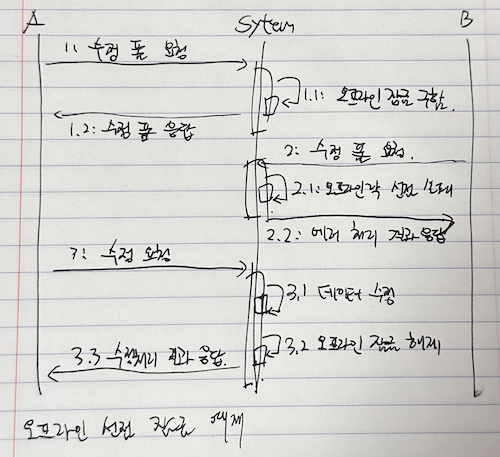 A Sytem B
1: 수정 폼 요청
1.1: 오프라인 잠금 구함.
1.2: 수정 폼 응답
2: 수정 폼 요청.
2.1: 오프라인 선점 실패
2.2: 에러 처리 결과 응답
3: 수정 요청
3.1 데이터 수정
3.2 오프라인 잠금 해제
3.3 수정처리 결과 응답.
오프라인 선점 잠금 예제